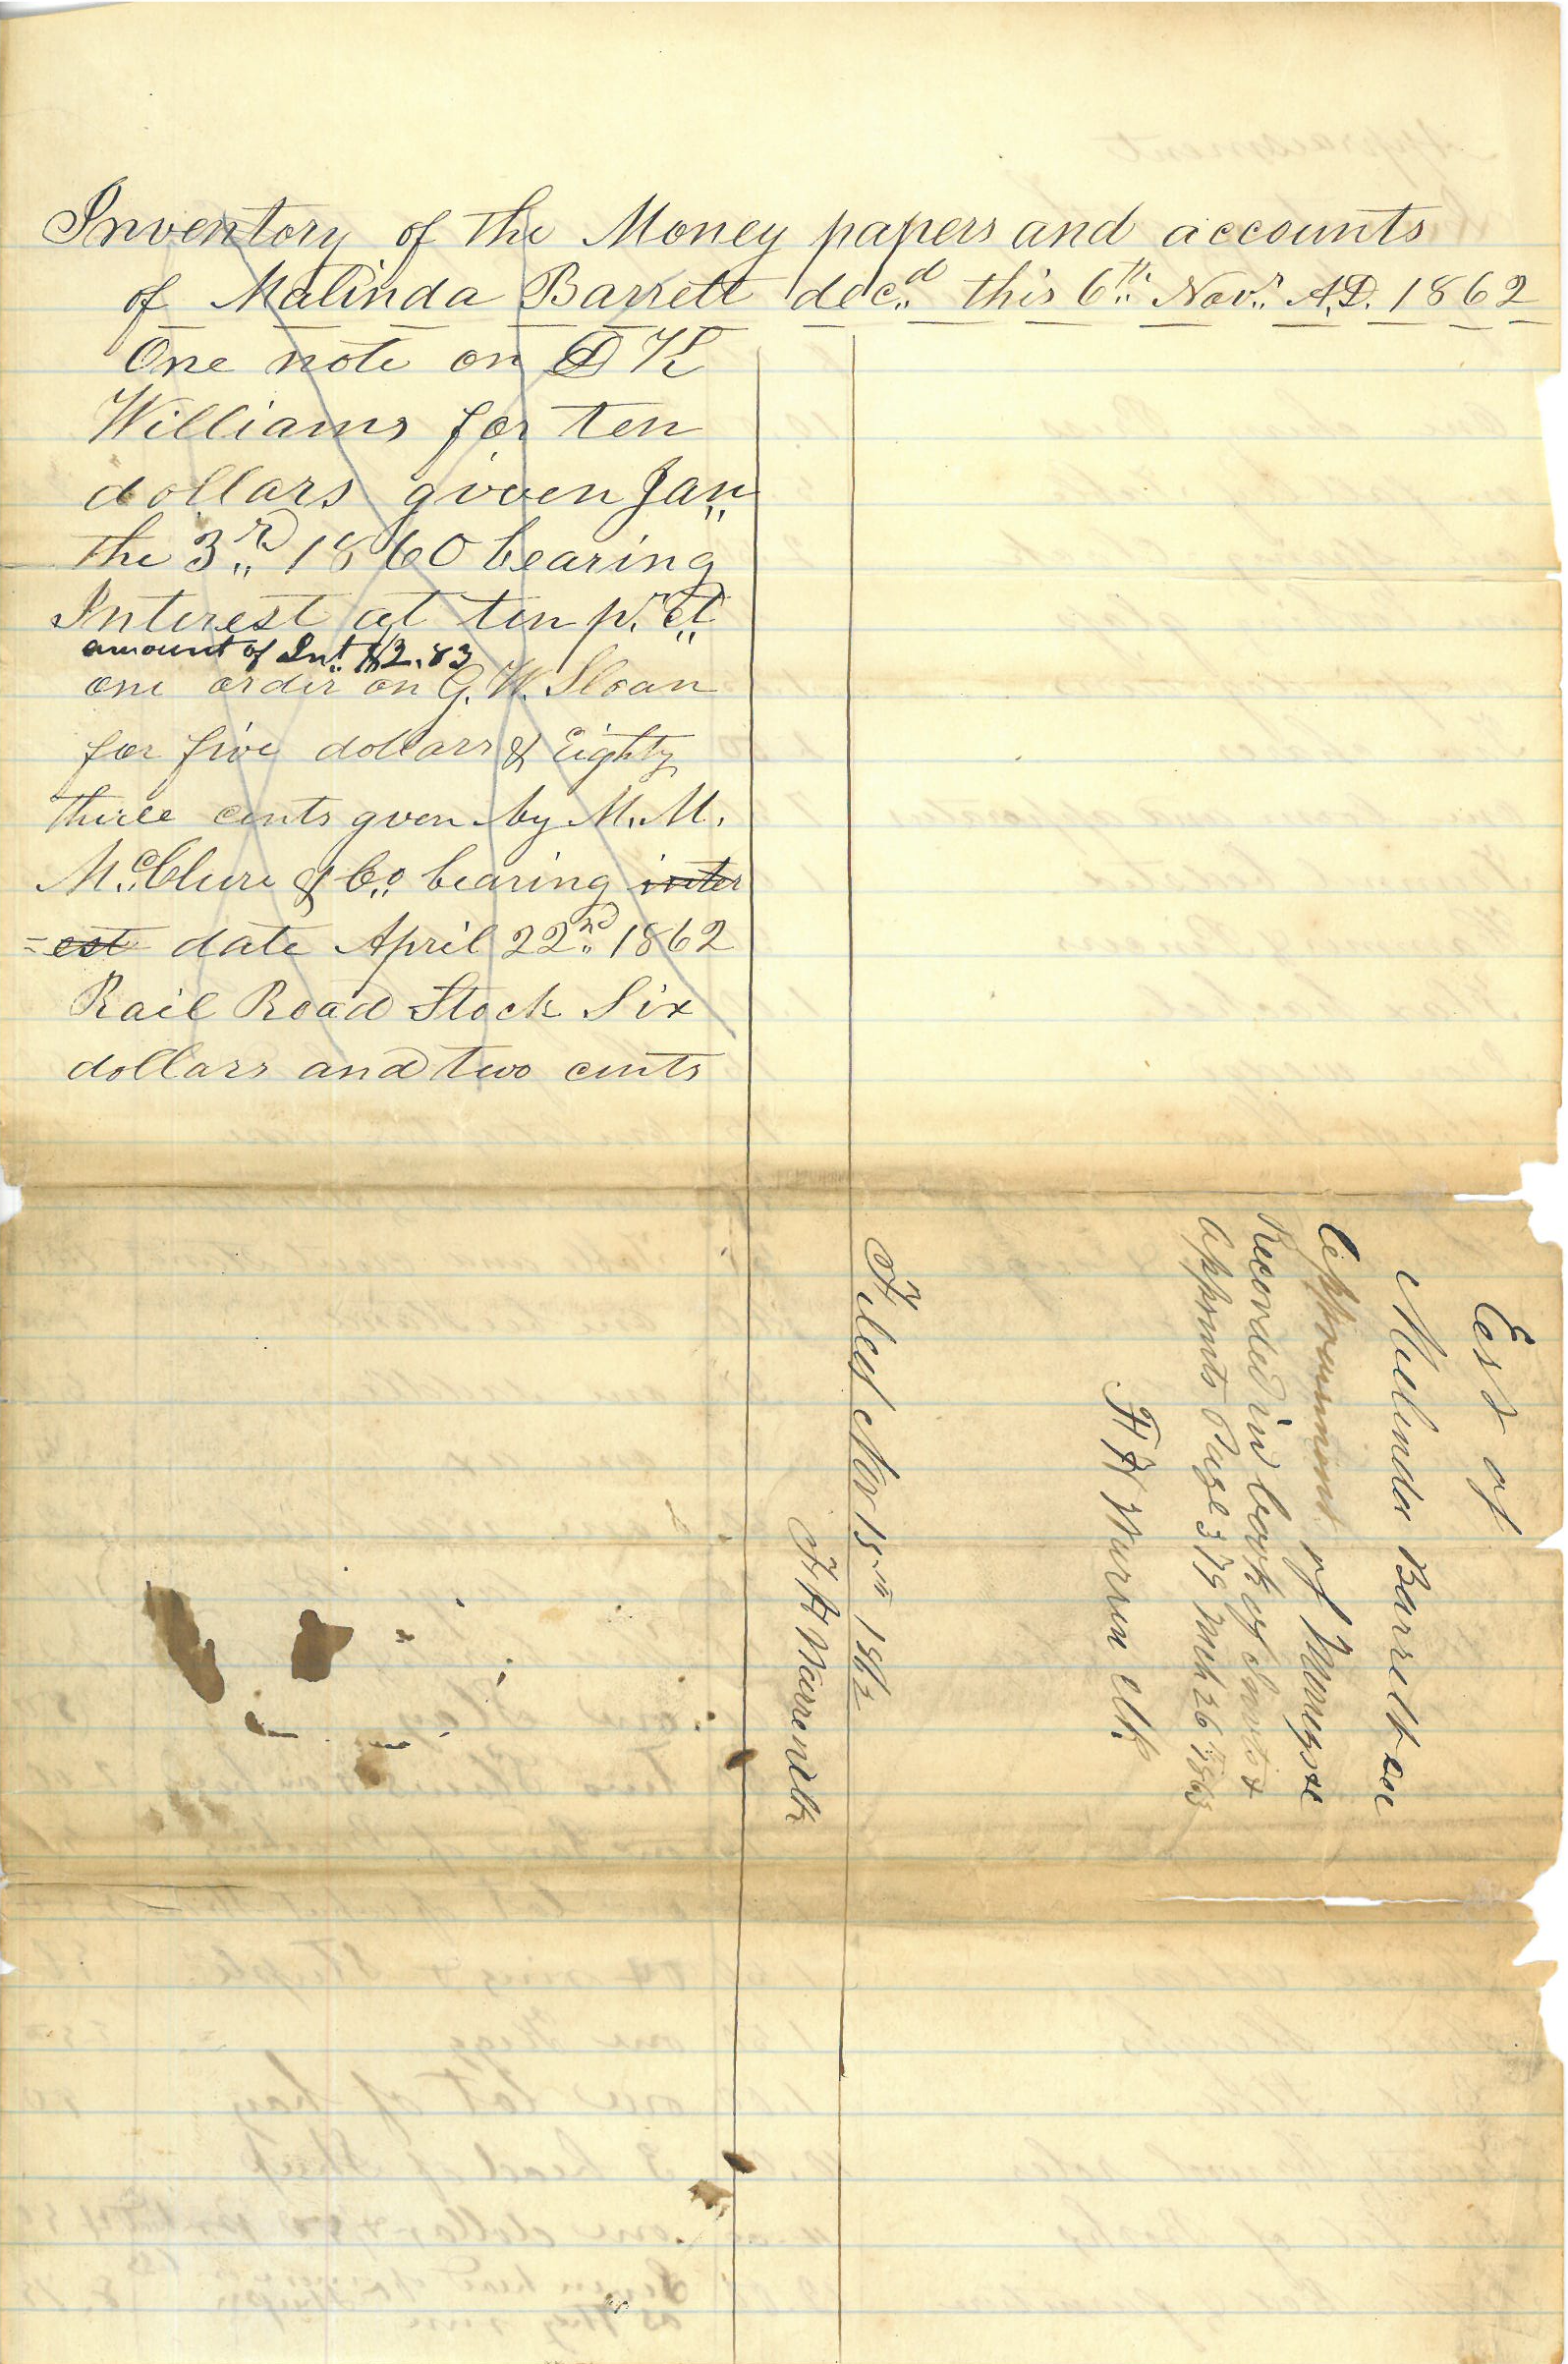 Inventory of the Money papers and accounts
of Malinda Barrett dec.d this 6th Nov.r A.D. 1862
One note on D K
Williams for ten
dollars given Jan
the 3rd 1860 bearing
Interest at ten pr ct
amount of Int $2.83
one order on G. W. Sloan
for five dollars & Eighty
three cents given by M. M.
McClure & Co bearing inter
=est date April 22nd 1862
Rail Road Stock Six
dollars and two cents
Est of
Malinda Barrett
Appraisment of Money &c
Recorded in book of Invts &
Appmts Page 379 Mch 26 1863
F H Warren Clk
Filed Nov 15th 1862
F H Warren Clk